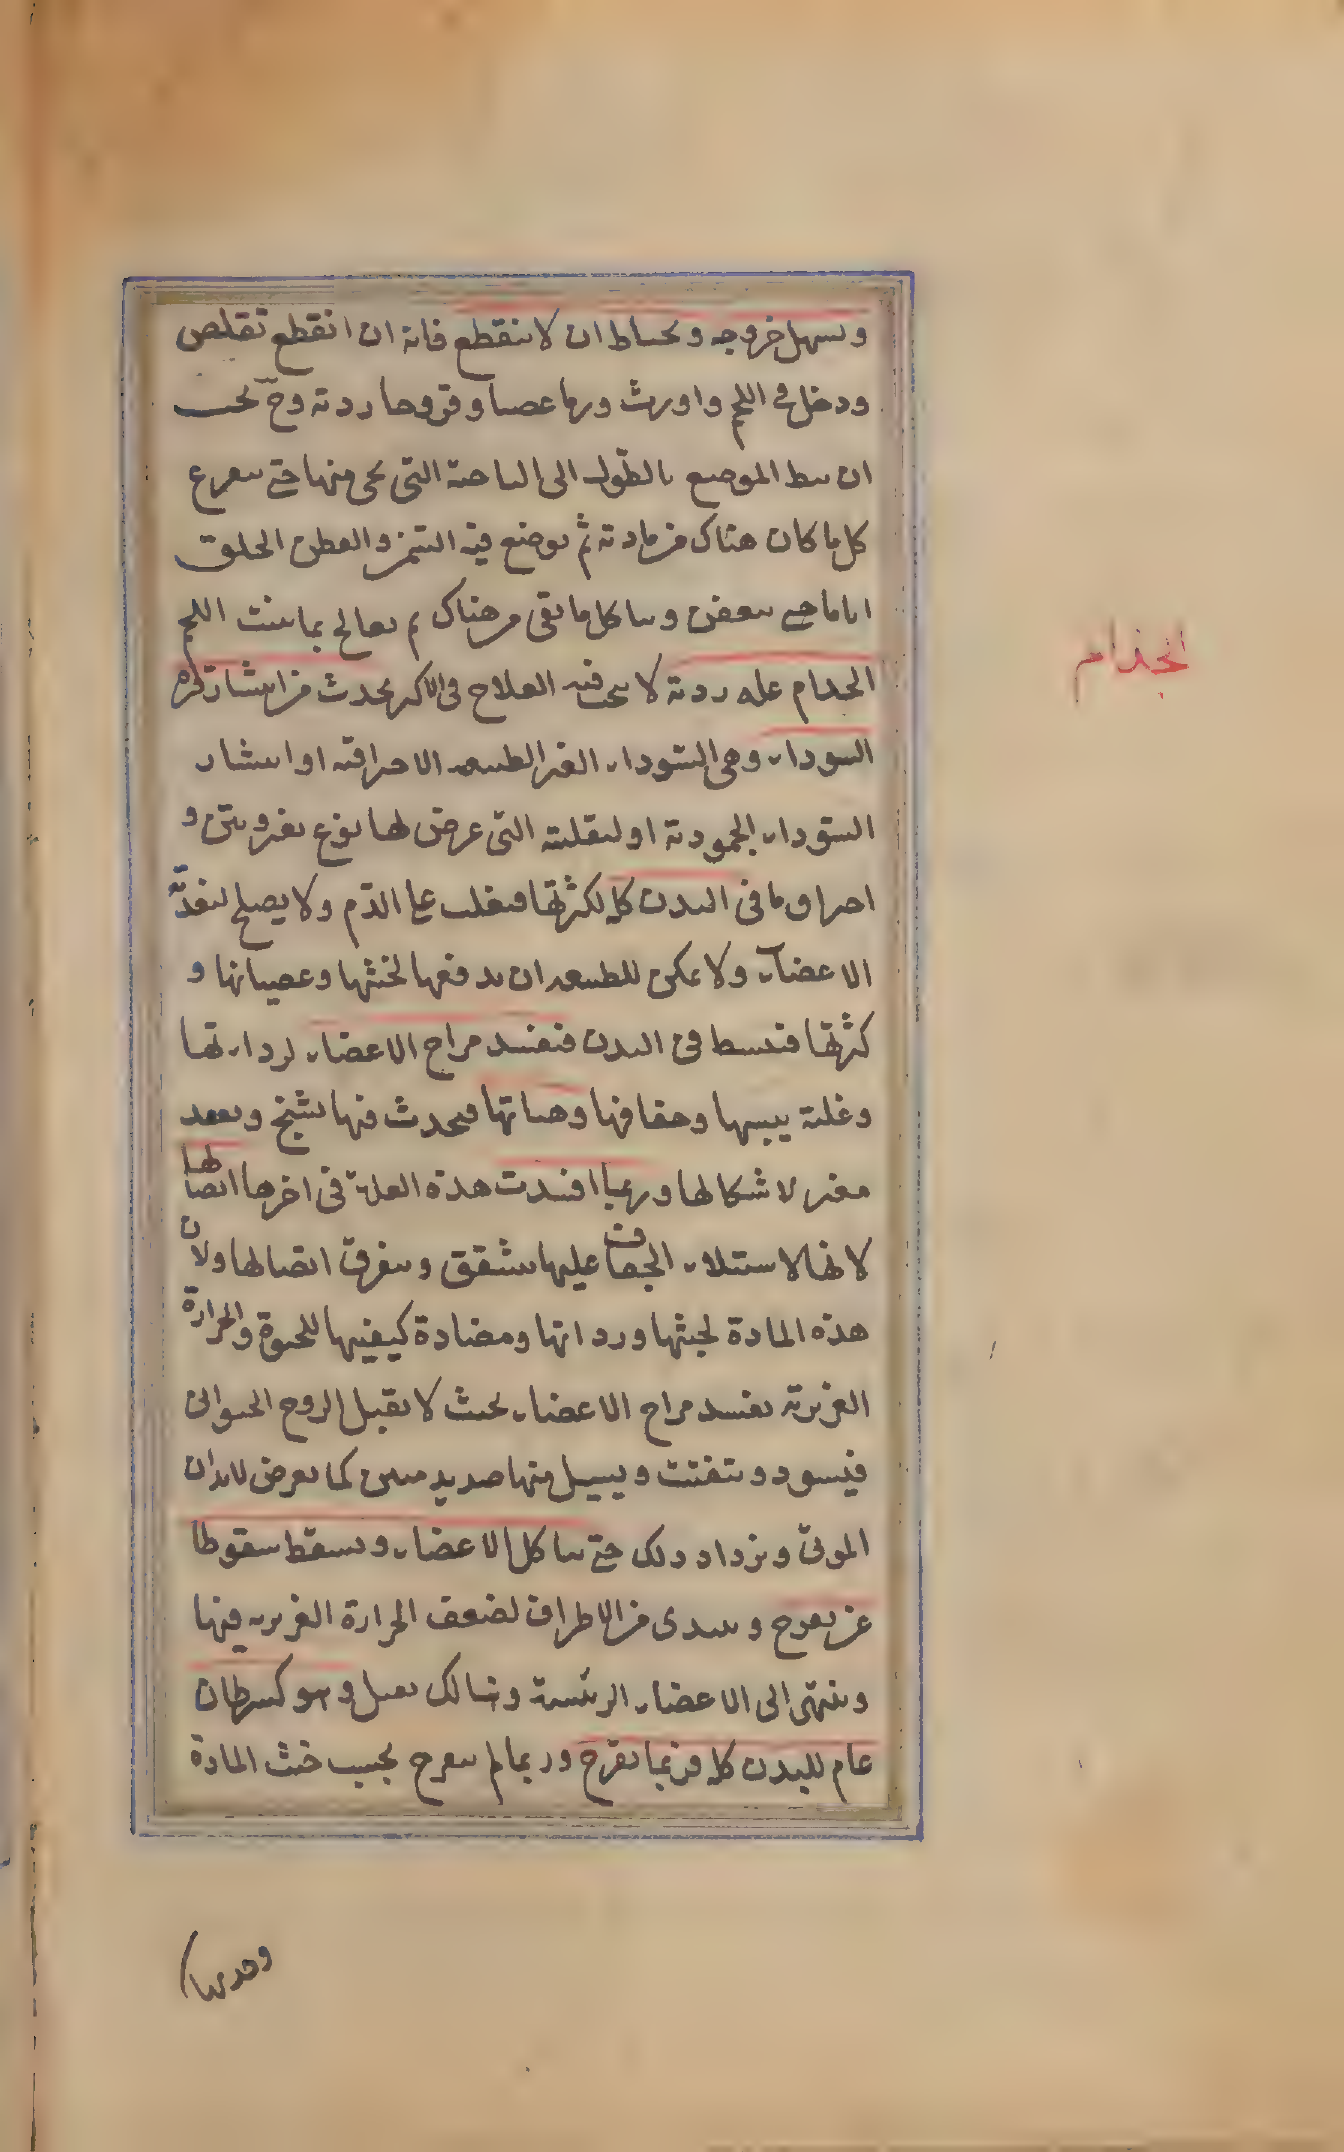 ويسهل خروجه ويحتاط ان لا ينقطع فانه ان انقطع تقلص
ودخل في اللحم واورث ورما عصيا وقروحا ردية وح يجب
ان يبط الموضع بالطول الى الناحية التي يجي منها حتى يتفرغ
كل ما كان هناك من مادته ثم يوضع فيه السمن والقطن الخلق
اياما حتى يتعفن ويتاكل ما بقى من هناك ثم يعالج بما ينبت اللحم
الجذام
الجذام علة ردية لا ينجب فيه العلاج في الاكثر يحدث من انتشار المرة
السوداء وهي السوداء الغير الطبيعية الاحراقية او انتشار
السوداء الجمودية او الثقلية التي عرض لها نوع تعفن و
احراق ما في البدن كله لكثرتها فيغلب على الدم ولا يصلح لتغذية
الاعضاء ولا يمكن للطبيعة ان يدفعها لخبثها وعصيانها و
كثرتها فتنبسط في البدن فتفسد مزاج الاعضاء لرداءتها
وغلبة يبسها وجفافها وهيأتها فيحدث فيها تشنج وتعقد
مغير لاشكالها وربما افسدت هذه العلة في اخرها اتصالها
لانها لاستيلاء الجفاف عليها يتشقق ويتفرق اتصالها ولان
هذه المادة لخبثها ورداتها ومضادة كيفيتها للحيوة والحرارة
الغريزية يفسد مزاج الاعضاء بحيث لا يقبل الروح الحيواني
فيسود ويتفتت ويسيل منها صديد منتن كما يعرض لابدان
الموتى ويزداد ذلك حتى يتاكل الاعضاء ويسقط سقوطا
عن تقرح ويبتدى من الاطراف لضعف الحرارة الغريزية فيها
وينتهى الى الاعضاء الرئيسة وهنالك يقتل وهو كسرطان
عام للبدن كله فربما تقرح وربما لم يتقرح بحسب خبث المادة